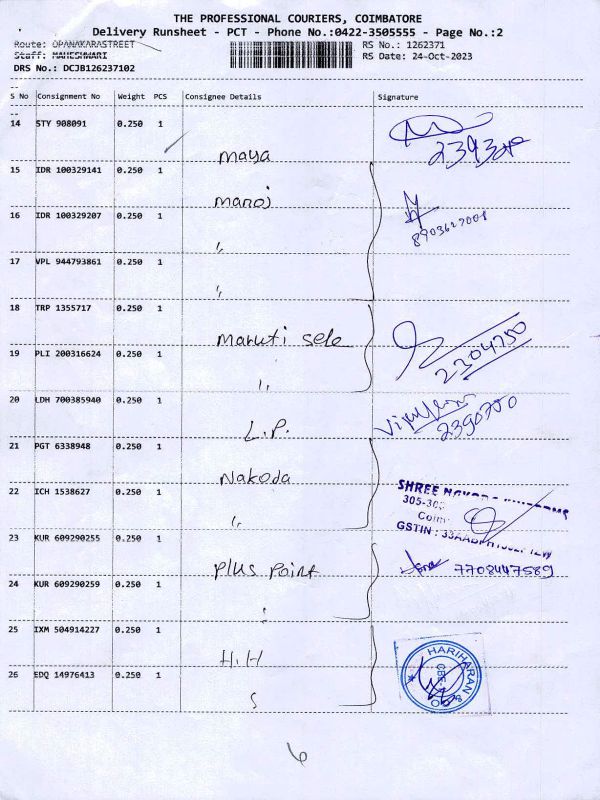 THE PROFESSIONAL COURIERS, COIMBATORE
Delivery Runsheet - PCT - Phone No.:0422-3505555 - Page No.:2
Route: OPANAKARASTREET RS No.: 1262371
Staff: MAHESHWARI RS Date: 24-Oct-2023
DRS No.: DCJB126237102
S No Consignment No Weight PCS Consignee Details Signature
14 STY 908091 0.250 1
Maya
15 IDR 100329141 0.250 1
Manoj
16 IDR 100329207 0.250 1
8903627001
"
17 VPL 944793861 0.250 1
"
18 TRP 1355717 0.250 1
Maruti sele
2304750
19 PLI 200316624 0.250 1
"
20 LDH 700385940 0.250 1
L.P.
2390700
21 PGT 6338948 0.250 1
Nakoda
SHREE
22 ICH 1538627 0.250 1
305-303
"
GSTIN :
23 KUR 609290255 0.250 1
Plus Point
7708447589
24 KUR 609290259 0.250 1
25 IXM 504914227 0.250 1
H.H
HARIHARAN & CO
CBE.
26 EDQ 14976413 0.250 1
6